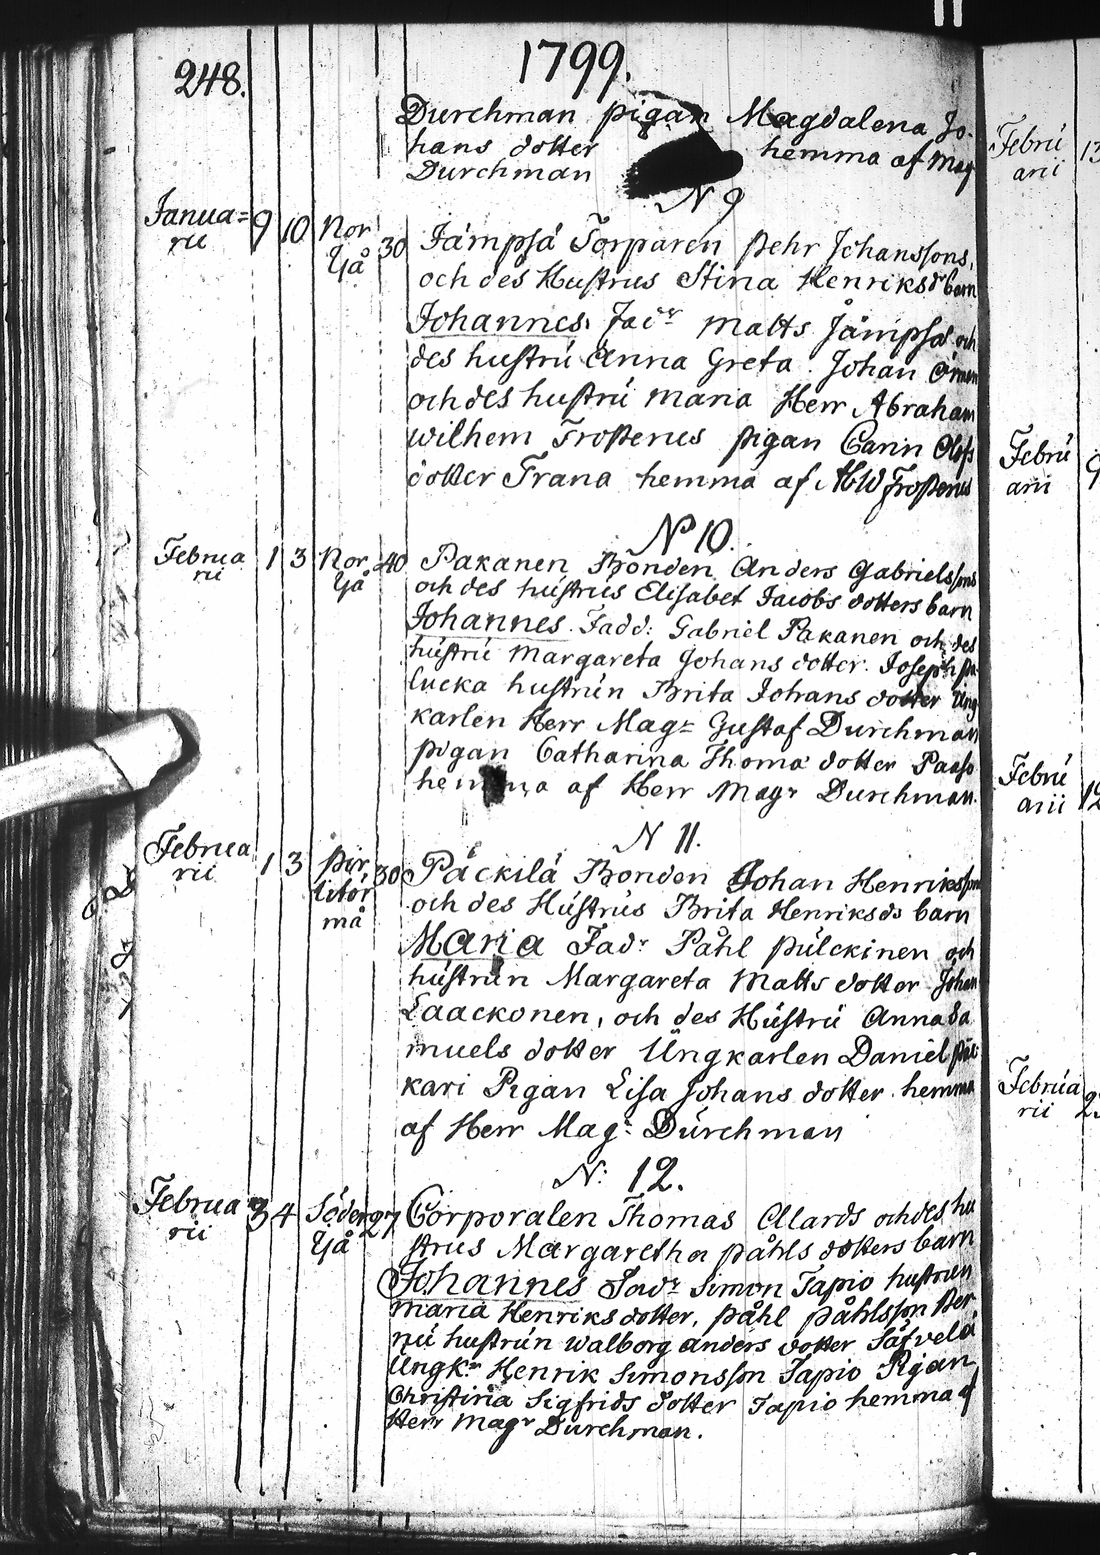 248.
1799.
Durchman pigan Magdalena Jo-
hans dotter hemma af Mag
Durchman
N 9
Janua=
rii
9 10 Nor
Yå
30
Jämpsä Torparen Pehr Johanssons,
och des Hustrus Stina Henriksdr barn
Johannes. Fadr Matts Jämpsä och
des hustrú Anna Greta. Johan
och des hustrú Maria Herr Abraham
Wilhem Frosterus pigan Carin Olofs
dotter Frana hemma af Frosterus
No 10.
Februa
rii
1 3 Nor
Yå
40
Pakanen Bonden Anders Gabrielssons
och des hustrus Elisabet Jacobs dotters barn
Johannes Fadd: Gabriel Pakanen och des
hústrú Margareta Johans dotter. Joseph
lucka hustrún Brita Johans dotter Ung
karlen Herr Magr Gustaf Durchman
pigan Catharina Thoma dotter Paaso
hemma af Herr Magr Durchman.
N 11.
Februa
rii
1 3 Pir
titör
må
30
Päckilä Bonden Johan Henrikssons
och des Hústrús Brita Henriksds barn
Maria Fadr Påhl Púlckinen och
hústrún Margareta Matts dotter Johan
Laackonen, och des Hústrú Anna Sa
muels dotter Ungkarlen Daniel
kari Pigan Lisa Johans dotter hemma
af Herr Magr Dúrchman
N: 12.
Februa
rii
3 4 Söder
Yå
27
Corporalen Thomas Allards och des hu
strus Margaretha Påhls dotters barn
Johannes Fadr Simon Tapio hustrun
Maria Henriks dotter, Påhl Påhlsson Ker
nú hustrún Walborg Anders dotter Säfvelä
Ungkr Henrik Simonsson Tapio Pigan
Christina Sigfrids dotter Tapio hemma af
Herr Magr Durchman.
Febrú
arii
13
Febrú
arii
9
Febrú
arii
12
Febrúa
rii